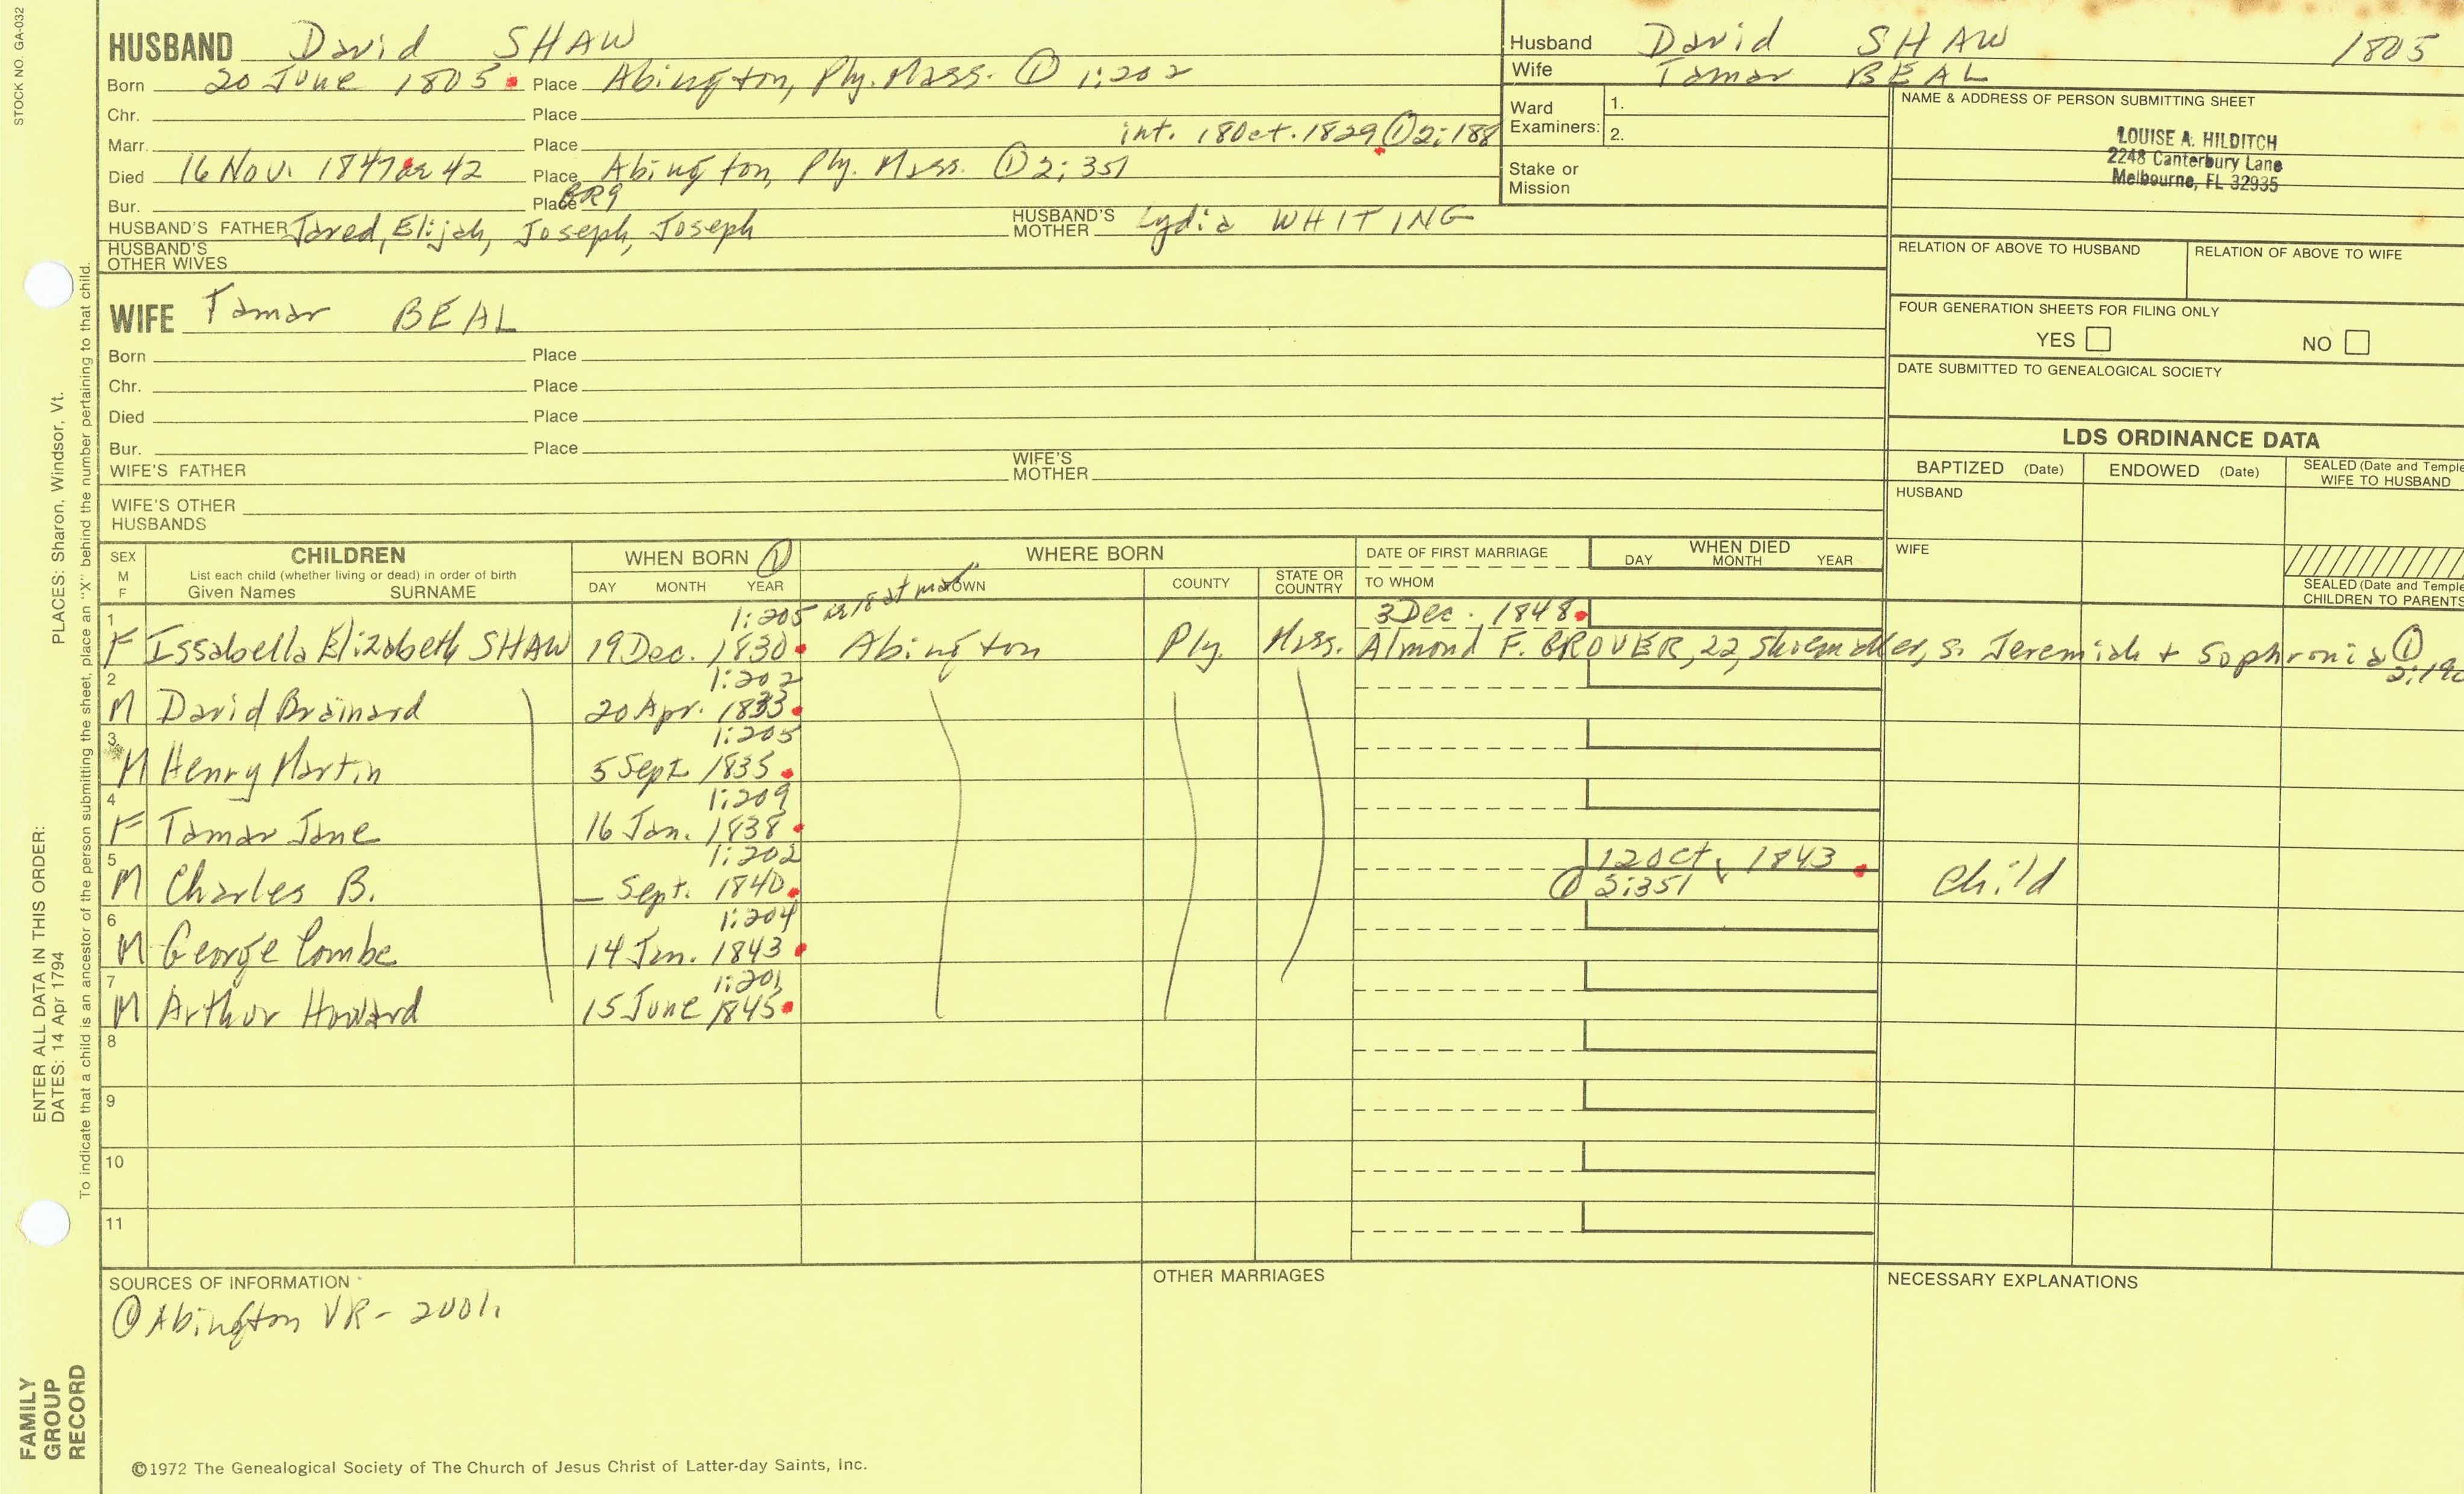 STOCK NO. GA-032
HUSBAND David SHAW
Born 20 June 1805 Place Abington, Ply. Mass. ① 1:202
Chr. Place
Marr. Place int. 18 Oct. 1829 ① 2:188
Died 16 Nov. 1847 42 Place Abington, Ply. Mass. ① 2:351
Bur. Place GR9
HUSBAND'S FATHER Jared, Elijah, Joseph, Joseph HUSBAND'S MOTHER Lydia WHITING
HUSBAND'S OTHER WIVES
Husband David SHAW 1805
Wife Tamar BEAL
Ward Examiners: 1.
2.
Stake or Mission
NAME & ADDRESS OF PERSON SUBMITTING SHEET
LOUISE A. HILDITCH
2248 Canterbury Lane
Melbourne, FL 32935
RELATION OF ABOVE TO HUSBAND RELATION OF ABOVE TO WIFE
FOUR GENERATION SHEETS FOR FILING ONLY
YES NO
DATE SUBMITTED TO GENEALOGICAL SOCIETY
WIFE Tamar BEAL
Born Place
Chr. Place
Died Place
Bur. Place
WIFE'S FATHER WIFE'S MOTHER
WIFE'S OTHER HUSBANDS
LDS ORDINANCE DATA
BAPTIZED (Date) ENDOWED (Date) SEALED (Date and Temple
WIFE TO HUSBAND
HUSBAND
WIFE
SEALED (Date and Temple
CHILDREN TO PARENTS
SEX M F
CHILDREN
List each child (whether living or dead) in order of birth
Given Names SURNAME
WHEN BORN ①
DAY MONTH YEAR
WHERE BORN
TOWN COUNTY STATE OR COUNTRY
DATE OF FIRST MARRIAGE
TO WHOM
WHEN DIED
DAY MONTH YEAR
1 1:205 is 18 at 3 Dec. 1848
F Issabella Elizabeth SHAW 19 Dec. 1830 Abington Ply. Mass. Almond F. GROVER, 22, Shoemaker, s. Jeremiah + Sophronia ①
2 1:202
M David Brainard 20 Apr. 1833
3 1:205
M Henry Martin 5 Sept. 1835
4 1:209
F Tamar Jane 16 Jan. 1838
5 1:202 12 Oct. 1843
M Charles B. — Sept. 1840 ① 2:351 Child
6 1:204
M George Combe 14 Jan. 1843
7 1:201
M Arthur Howard 15 June 1845
8
9
10
11
SOURCES OF INFORMATION
① Abington VR - 2001.
OTHER MARRIAGES
NECESSARY EXPLANATIONS
©1972 The Genealogical Society of The Church of Jesus Christ of Latter-day Saints, Inc.
PLACES: Sharon, Windsor, Vt.
To indicate that a child is an ancestor of the person submitting the sheet, place an "X" behind the number pertaining to that child.
ENTER ALL DATA IN THIS ORDER:
DATES: 14 Apr 1794
FAMILY
GROUP
RECORD